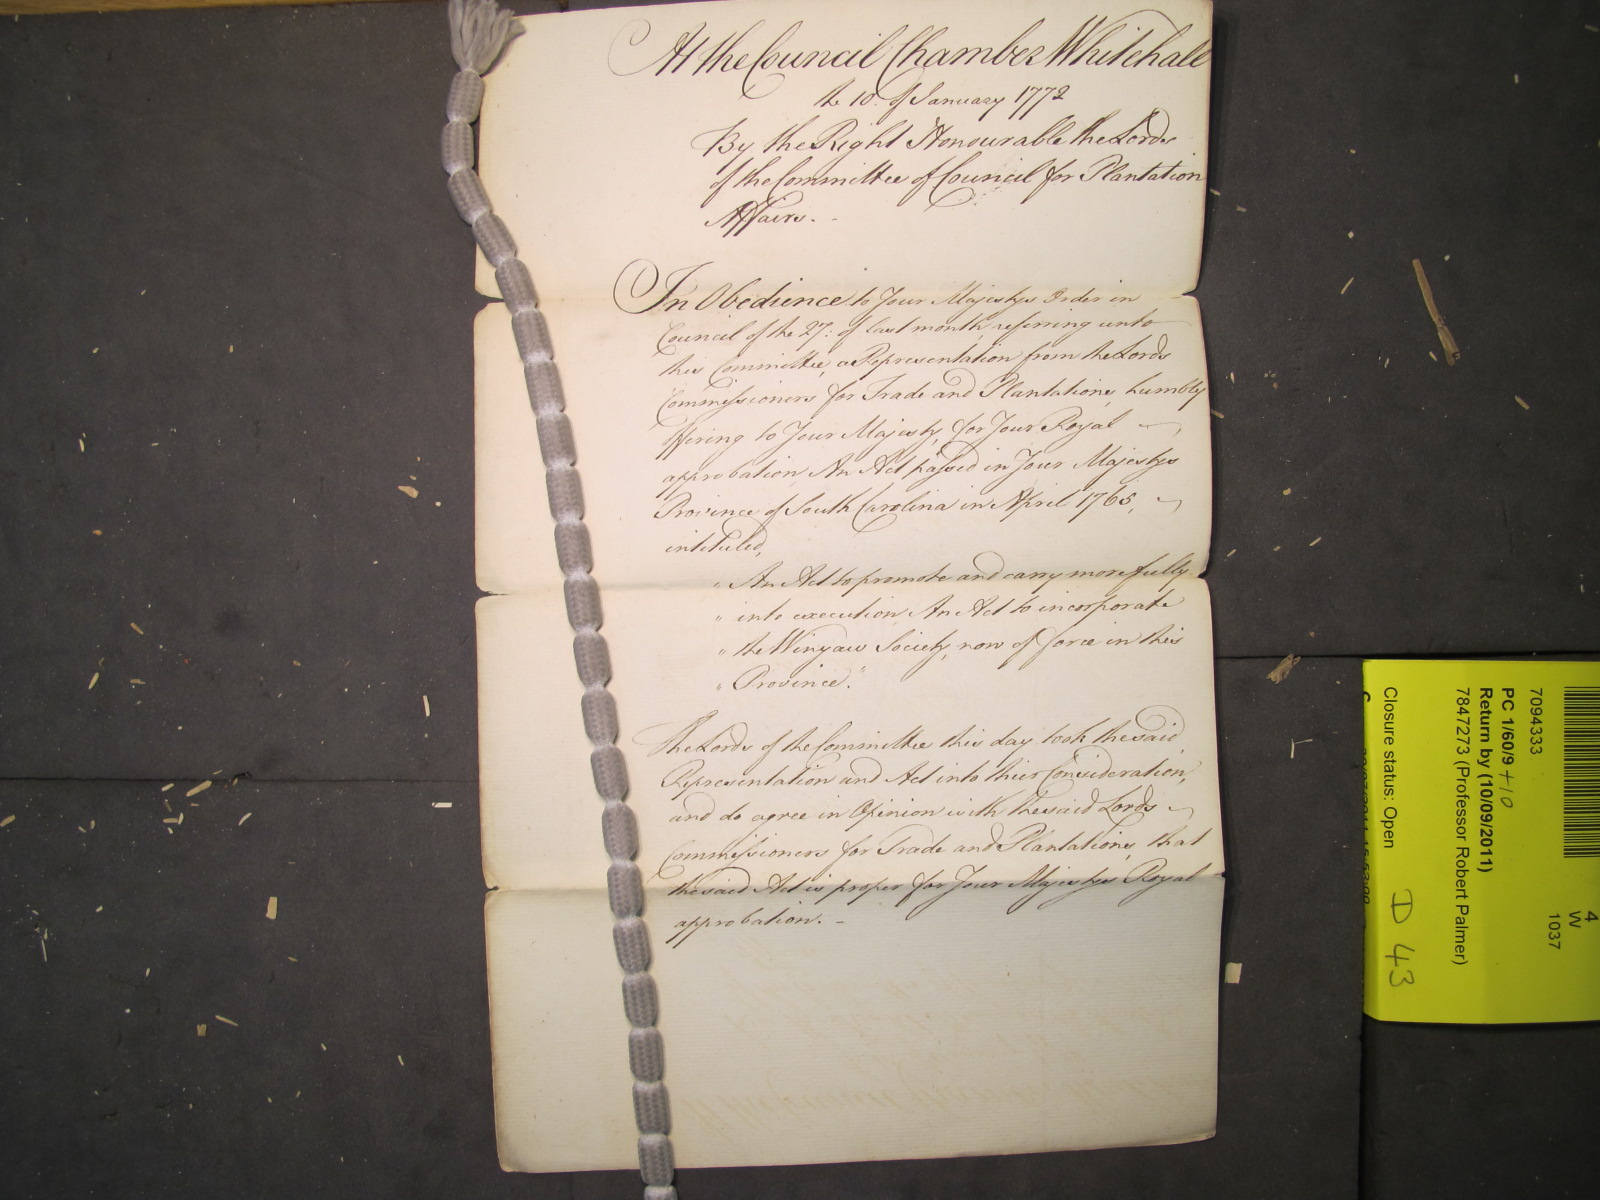 At the Council Chamber Whitehall
the 10: of January 1772
By the Right Honourable the Lords
of the Committee of Council for Plantation
Affairs.
In Obedience to Your Majestys Order in
Council of the 27: of last month, referring unto
this Committee, a Representation from the Lords
Commissioners for Trade and Plantations, humbly
offering to Your Majesty, for Your Royal
approbation An Act passed in Your Majestys
Province of South Carolina in April 1768,
intituled,
" An Act to promote and carry more fully
" into execution An Act to incorporate
" the Winyaw Society, now of force in this
" Province."
The Lords of the Committee this day took the said
Representation and Act into their Consideration,
and do agree in Opinion with the said Lords
Commissioners for Trade and Plantations, that
the said Act is proper for Your Majestys Royal
approbation.
4
W
1037
7094333
PC 1/60/9 +10
Return by (10/09/2011)
7847273 (Professor Robert Palmer)
Closure status: Open
D 43